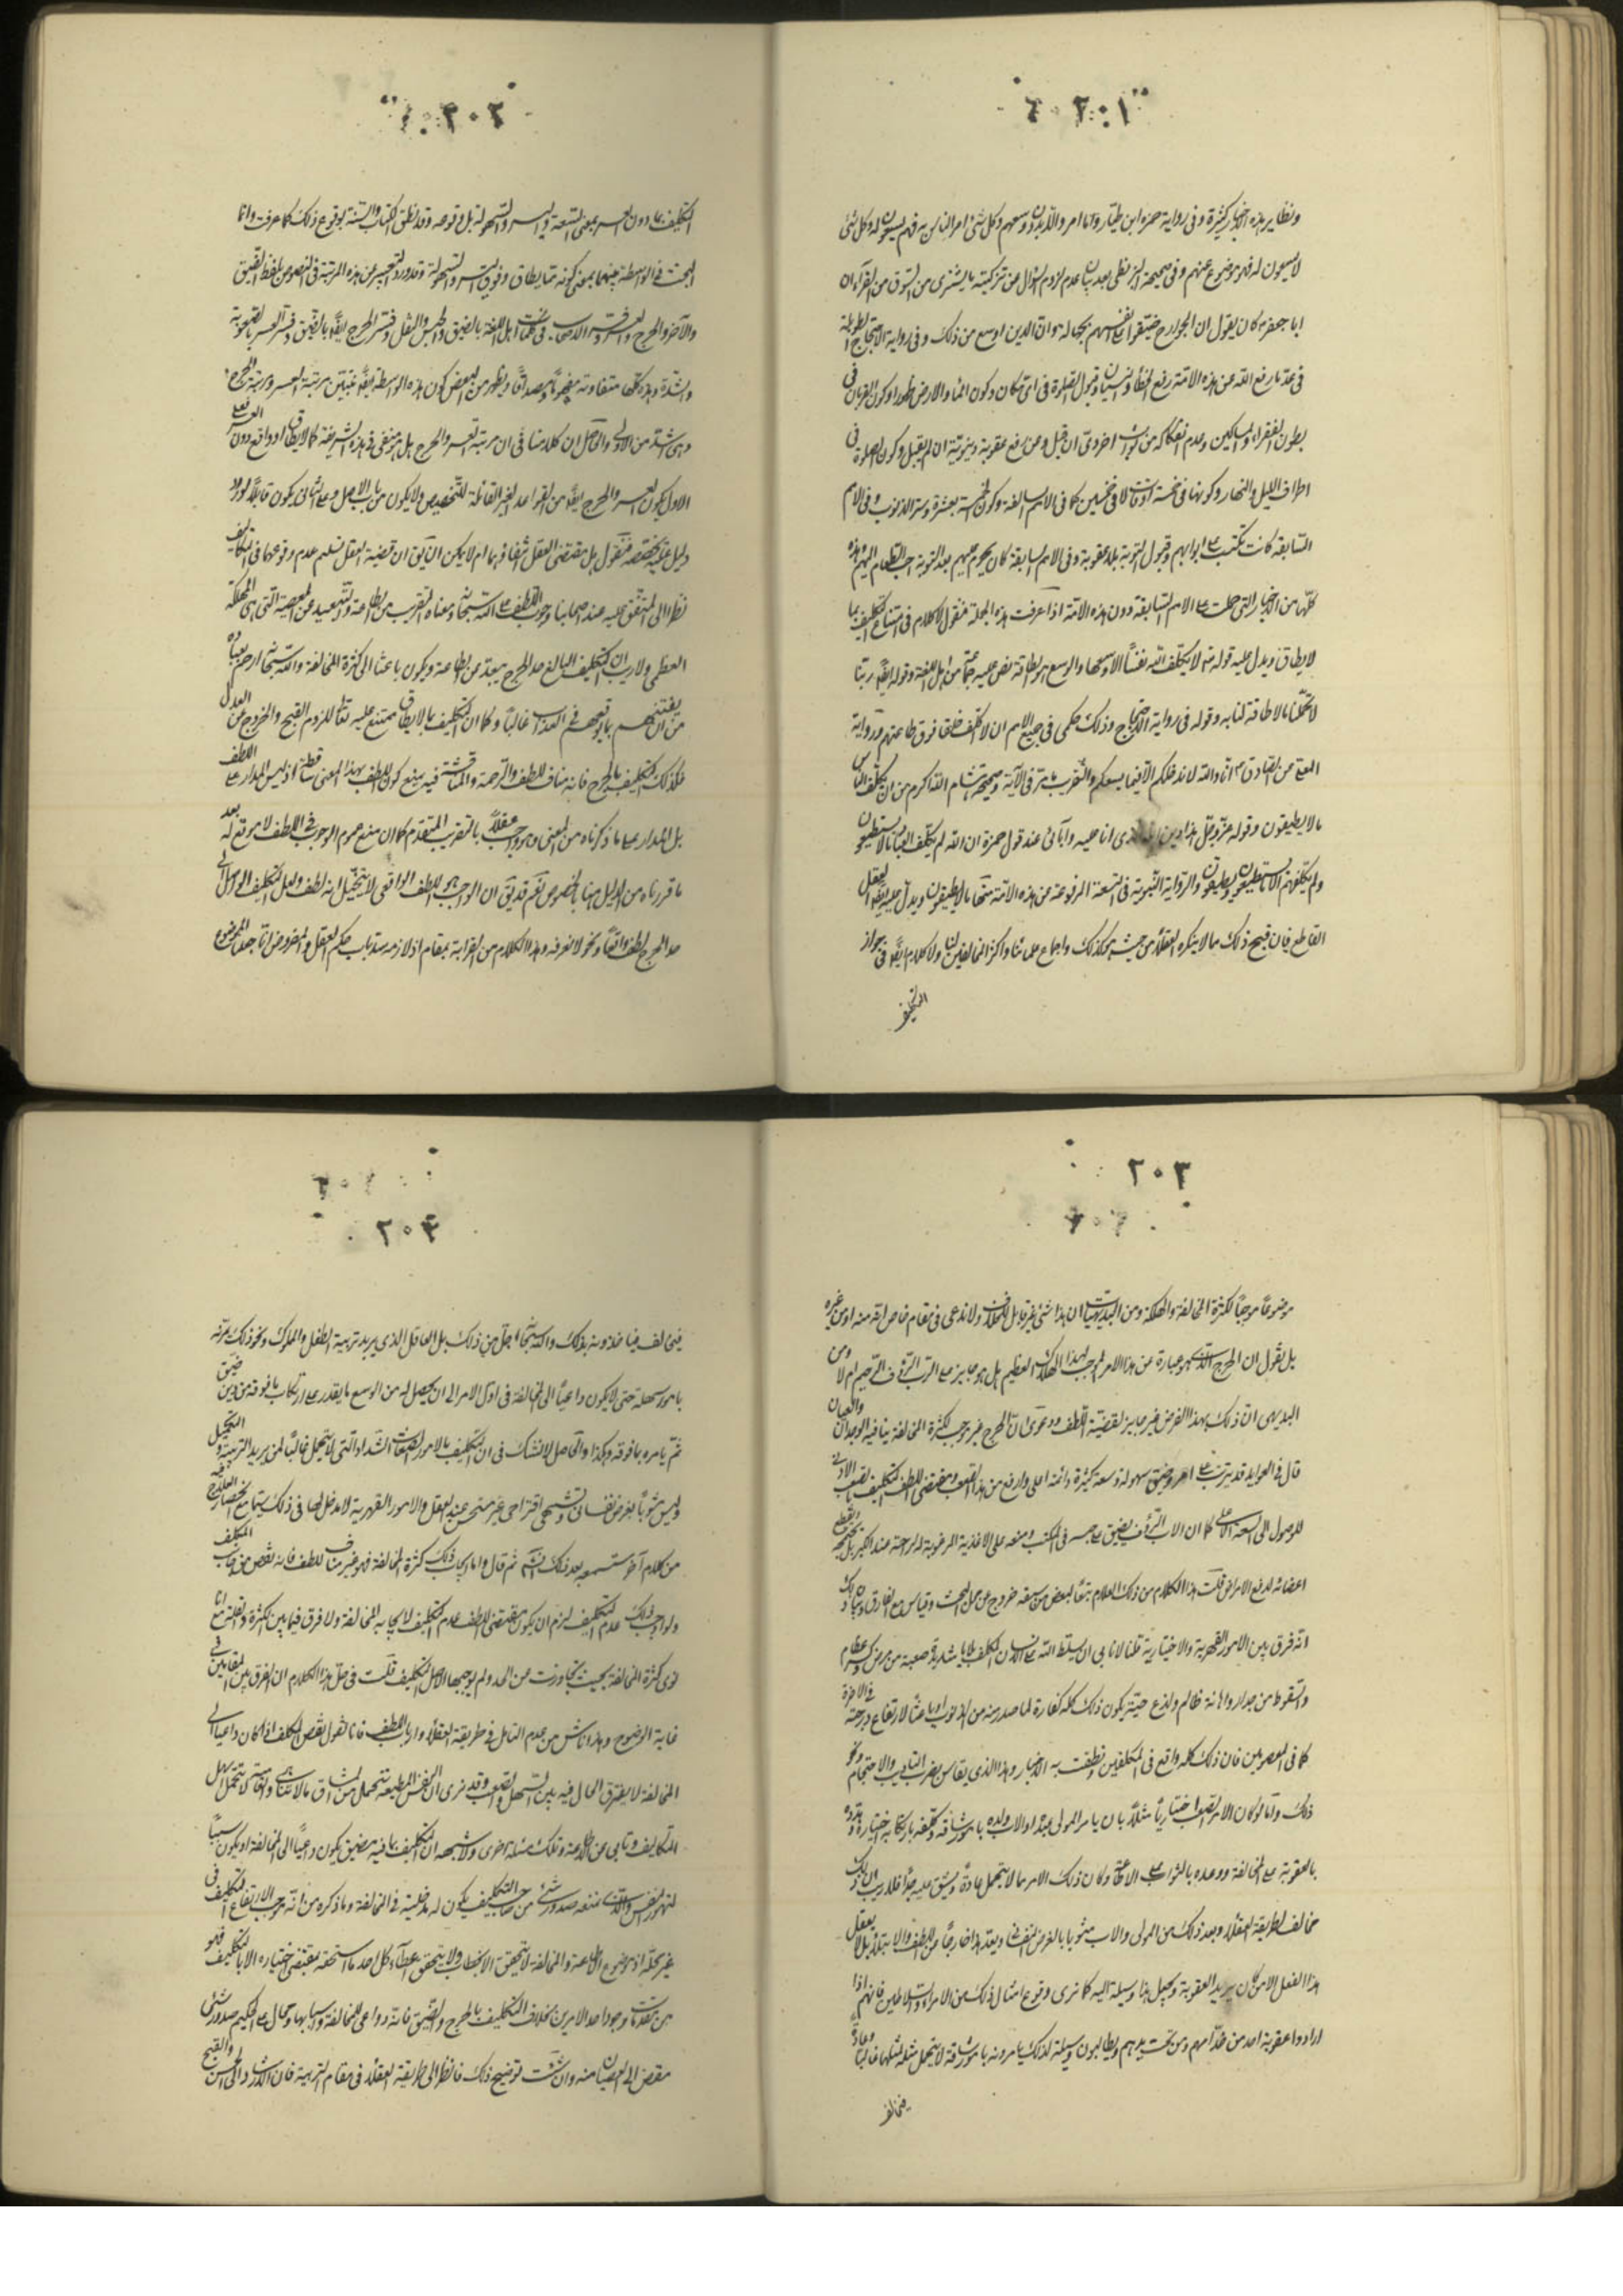 ٢٠١
ونظاير هذه الاخبار كثيرة وفي رواية حمزة ابن طيار وما امروا الا بدون سعتهم وكل شئ امر الناس به فهم يسعون له وكل شئ
لا يسعون له فهو موضوع عنهم وفي صحيحة البزنطي بعد بيان عدم لزوم السؤال عن تزكيته ما يشترى من السوق من الفراء ان
ابا جعفر ع كان يقول ان الخوارج ضيقوا على انفسهم بجهالتهم وان الدين اوسع من ذلك وفي رواية الاحتجاج الطويلة
في عد ما رفع الله عن هذه الامة رفع الخطأ والنسيان وقبول الصلوة في اي مكان وكون الماء والارض طهورا وكون القربان في
بطون الفقراء والمساكين وعدم انفكاكه من ثواب اخروي ان قبل ومن رفع عقوبة دنيوية ان لم يقبل وكون الصلوة في
اطراف الليل والنهار وكونها في خمسة اوقات لا في خمسين كما في الامم السالفة وكون الحسنة بعشرة وستر الذنوب وفي الامم
السابقة كانت تكتب على ابوابهم وقبول التوبة بلا عقوبة وفي الامم السابقة كان يحرم عليهم بعد التوبة احب الطعام اليهم وهذه
كلها من الاخبار التي حملت على الامم السابقة دون هذه الامة اذا عرفت هذه الجملة فنقول لا كلام في امتناع التكليف بما
لا يطاق ويدل عليه قوله تع لا يكلف الله نفسا الا وسعها والوسع هو الطاقة نص عليه جماعة من اهل اللغة وقوله ايضا ربنا
لا تحملنا ما لا طاقة لنا به وقوله في رواية الاحتجاج وذلك حكمي في جميع الامم ان لا اكلف خلقا فوق طاقتهم ورواية
عن الصادق ع انا والله لا ندخلكم الا فيما يسعكم والتقريب ما مر في الآية وصحيحة هشام الله اكرم من ان يكلف الناس
ما لا يطيقون وقوله عز وجل هذا دين الله الذي انا عليه وآبائي عند قول حمزة ان الله لم يكلف العباد الا ما يستطيعون
ولم يكلفهم الا ما يستطيعون ويطيقون والرواية النبوية في التسعة المرفوعة عن هذه الامة منها ما لا يطيقون ويدل عليه ايضا العقل
القاطع فان قبح ذلك مما لا ينكره العقلاء من حيث هو كذلك واجماع علمائنا واكثر المخالفين لنا ولا كلام ايضا في جواز
التكليف
٢٠٢
التكليف بما دون العسر بمعنى السعة واليسر والسهولة بل وقوعه وقد نطق الكتاب والسنة بوقوع ذلك كما عرفت وانما
البحث في الواسطة بينهما بمعنى كونه مما يطاق وفوق اليسر والسهولة وقد ورد التعبير عن هذه المرتبة في النصوص بلفظ الضيق
والآخر والحرج والعسر وفسر في كلمات اهل اللغة بالضيق والحبس والثقل وفسر الحرج ايضا بالضيق وفسر العسر بالصعوبة
والشدة وهذه كلها متفاوتة مفهوما ومصداقا ويظهر من البعض كون هذه الواسطة ايضا مرتبتين مرتبة العسر ومرتبة الحرج
وهي اشد من الاولى والحاصل ان كلامنا في ان مرتبة العسر والحرج هل هو منفي في هذه الشريعة كما لا يطاق او واقع دون
الاول يكون العسر والحرج ايضا من القواعد الغير القابلة للتخصيص ولا يكون من باب الاصل وعلى الثاني يكون قابلا لورود
دليل عليه يخصصه فنقول هل مقتضى العقل انتفاؤهما ام لا يمكن ان يقال ان قضية العقل تسليم عدم وقوعهما في التكاليف
نظرا الى المتفق عليه عند اصحابنا وجوب اللطف على الله سبحانه ومعناه التقريب من الطاعة والتبعيد عن المعصية التي هي المهلكة
العظمى ولا ريب ان التكليف البالغ حد الحرج مبعد من الطاعة ويكون باعثا الى كثرة المخالفة والله سبحانه ارحم بعباده
من ان يفتنهم بما يوقعهم في العذاب غالبا وكما ان التكليف بما لا يطاق ممتنع عليه تعالى للزوم القبح والخروج عن العدل
فكذلك التكليف بالحرج فانه مناف للطف والرحمة والمناقشة فيه بمنع كون اللطف بهذا المعنى ساقطة اذ ليس المدار على اللطف
بل المدار على ما ذكرناه من المعنى وهو واجب عقلا بالتقريب المتقدم كما ان منع عموم الوجوب في اللطف لا موقع له بعد
ما قررناه من الدليل هنا بالخصوص نعم قد يقال ان الواجب هو اللطف الواقعي لا ما يتخيل انه لطف ولعل التكليف الواصل الى
حد الحرج لطف واقعا ونحن لا نعرفه وهذا الكلام من الغرابة بمقام اذ لازمه سد باب حكم العقل والمفروض انا جعلنا الموضوع
٢٠٣
موضوعا موجبا لكثرة المخالفة والهلكة ومن البديهيات ان هذا شئ غير قابل للخلاف ولا ندعي في مقام خاص انه منه او من غيره
بل نقول ان الحرج الذي هو عبارة عن هذا الامر الموجب لهذا الهلاك العظيم هل هو جايز على الرب الرؤف الرحيم ام لا ومن
البديهي ان ذلك بهذا الفرض غير جايز لقضية اللطف ودعوى ان الحرج غير موجب لكثرة المخالفة ينافيه الوجدان والعيان
قال في العوايد قد يترتب على امر وضيق سهولة وسعة كثيرة دائمة اعلى وارفع من هذا الصعب ومقتضى اللطف التكليف بالصعب الادنى
للوصول الى السعة كما ان الاب الرؤف يضيق على ولده بحبسه في المكتب ومنعه على الاغذية المرغوبة له لراحته عند الكبر بل بقطع
اعضائه لدفع الامراض قلت هذا الكلام من ذلك العلام تبعا لبعض من سبقه خروج عن محل البحث وقياس مع الفارق
انه فرق بين الامور القهرية والاختيارية فلنا لا نابى ان يسلط الله على الانسان المكلف بلايا شديدة صعبة من مرض وكسر عظم
والسقوط من جدار واهانة ظالم ولدغ حية يكون ذلك كله كفارة لما صدر منه من الذنوب او باعثا لارتفاع درجته في الآخرة
كما في المعصومين فان ذلك كله واقع في المكلفين ونطقت به الاخبار وهذا الذي يقاس بضرب التاديب والاحتجام ونحو
ذلك واما لو كان الامر الصعب اختياريا مثلا بان يامر المولى عبده او الاب ولده بامور شاقة وكلفه بارتكابه اختيارا وهدده
بالعقوبة على المخالفة ووعده بالثواب على الاطاعة وكان ذلك الامر مما لا يتحمل عادة ويشق عليه جدا فلا ريب ان ذلك
مخالف لطريقة العقلاء ويعد ذلك من المولى والاب مشوبا بالغرض النفساني ويعد هذا خارجا من اللطف والابتلاء بل لا يعقل
هذا الفعل الا من كان يريد العقوبة ويجعل هذا وسيلة اليه كما نرى وقوع امثال ذلك من الامراء والسلاطين فانهم اذا
ارادوا عقوبة احد من خدامهم ومن تحت يدهم ويطالبون وسيلة لذلك يامرونه بامور شاقة لا يتحمل مثله لمثلها غالبا وعادة
فيخالف
٢٠٤
فيخالف فياخذونه بذلك والله سبحانه اجل من ذلك بل العاقل الذي يريد تربية الطفل والمملوك ونحو ذلك يمرنه
بامور سهلة حتى لا يكون داعيا الى المخالفة في اول الامر الى ان يحصل له من الوسع ما يقدر على ارتكاب ما فوقه من دون ضيق
ثم يامره بما فوقه وهكذا والحاصل لا نشك في ان التكليف بالامور الصعاب الشداد التي لا يتحمل غالبا لمن يريد التربية والتكميل
وليس مشوبا بغرض نفساني وتشهي اقتراحي غير مستحسن عند العقل والامور القهرية لا مدخل لها في ذلك سيما مع انحصار العلاج فيه
من كلام آخر ستسمعه بعد ذلك انشاء الله ثم قال واما ايجاب ذلك كثرة المخالفة فهو غير مناف للطف فانه لنقص من جانب المكلف
ولو اوجب ذلك عدم التكليف لزم ان يكون مقتضى اللطف عدم التكليف لايجابه المخالفة ولا فرق فيما بين الكثرة والقلة مع انا
نرى كثرة المخالفة بحيث تجاوزت عن الحد ولم يوجبها الا اصل التكليف قلت في حل هذا الكلام ان الفرق بين المقامين في
غاية الوضوح وهذا ناش من عدم التامل في طريقة العقلاء وارباب اللطف فانا نقول نقص المكلف اذا كان داعيا الى
المخالفة لا يفترق الحال فيه بين السهل والصعب وقد نرى ان النفس المطيعة تتحمل من المشاق ما لا يتناهى والعاصية لا تتحمل اسهل
التكاليف وتابى عن الاطاعة وتلك مسئلة اخرى ولا شبهة ان التكليف بما فيه مضيق يكون داعيا الى المخالفة او يكون سببا
لتهور النفس والذي نمنعه صدور شئ من جانب التكليف يكون له مدخلية في المخالفة وما ذكره من انه يوجب ارتفاع التكليف في
غير محله اذ موضوع الطاعة والمخالفة لا يتحقق الا بخطاب ولا يتحقق اعطاء كل احد ما استحقه بمقتضى اختياره الا بالتكليف فهو
من مقدمات وجود احد الامرين بخلاف التكليف بالحرج والضيق فانه دواعي المخالفة واسبابها ومحال على الحكيم صدور شئ
مفض الى العصيان منه وان شئت توضيح ذلك فانظر الى طريقة العقلاء في مقام التربية فان الارشاد الى الحسن والقبح